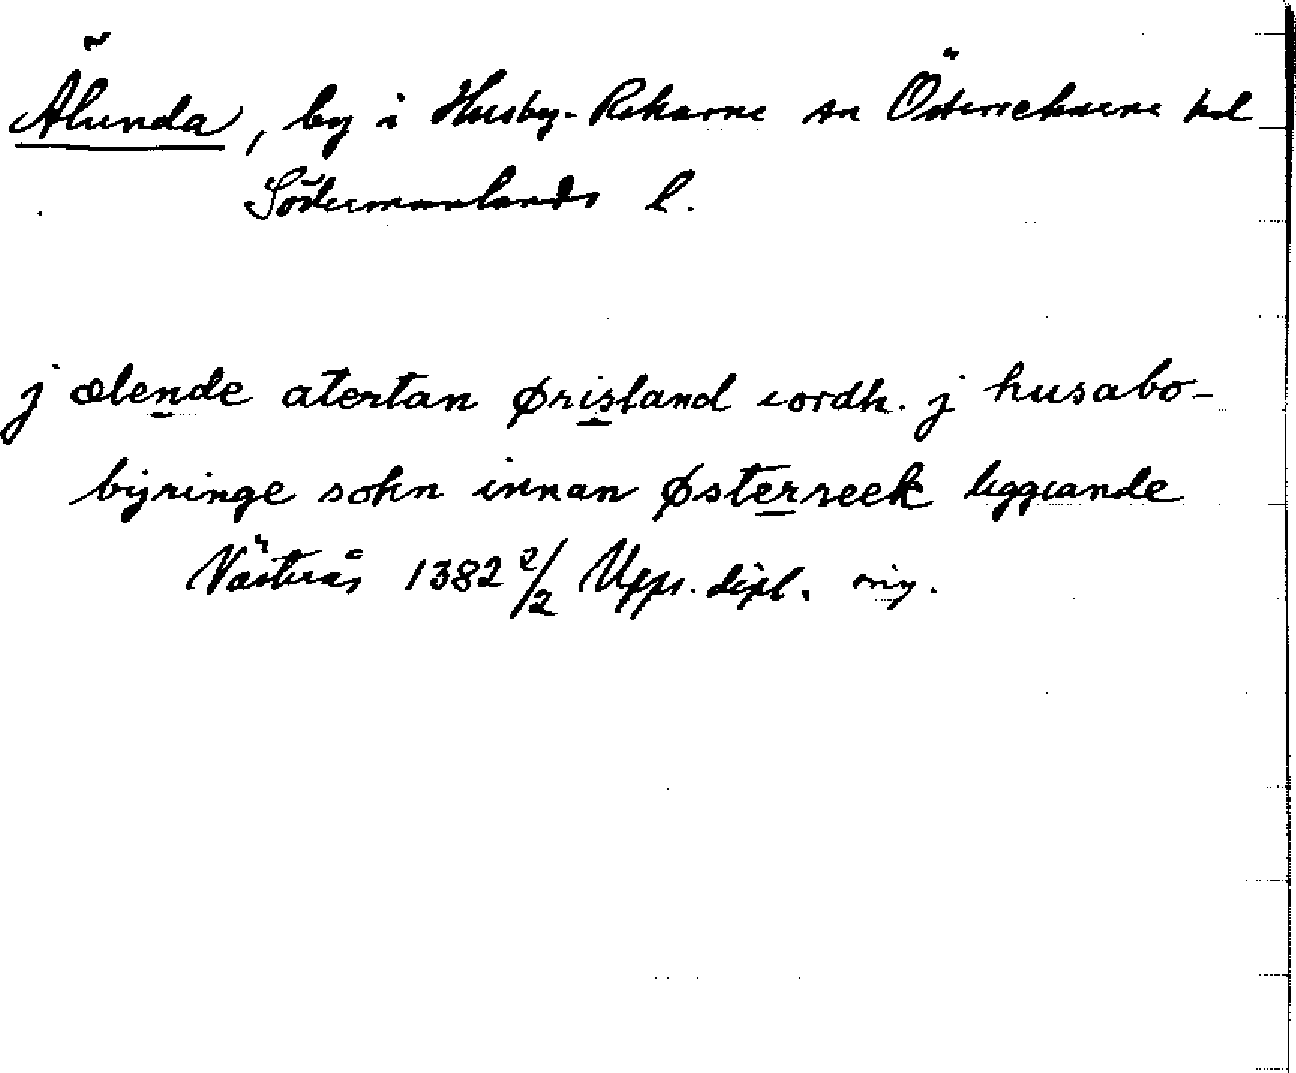 Älunda, by i Husby-Rekarne sn Österrekarne hd
Södermanlands l.
j ælende atertan ørisland iordh. j husabo-
byringe sokn innan østerreek liggiande
Västerås 1382 2/2 Upps. dipl. orig.